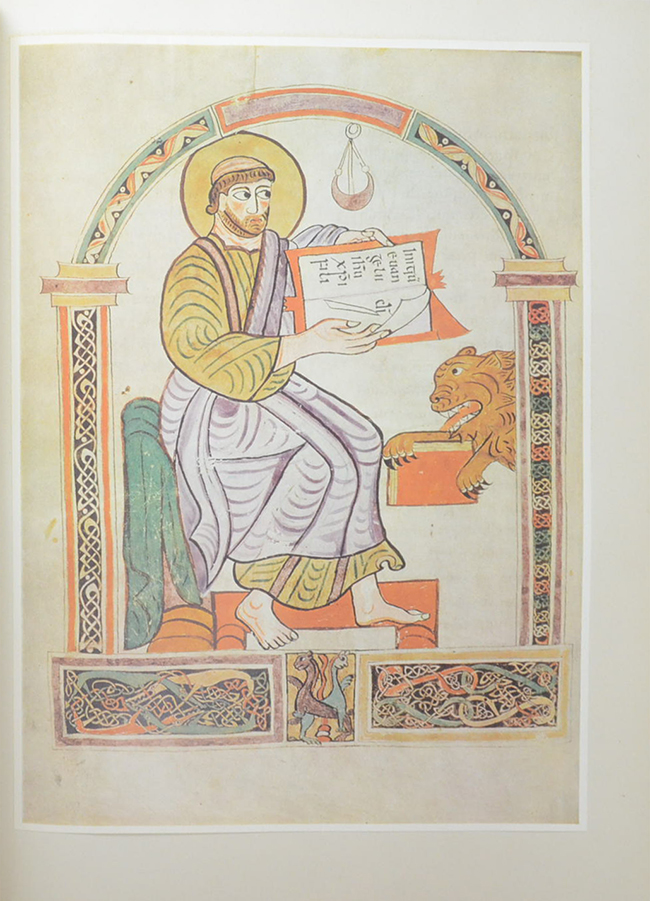 Initiū
euan
gelii
ihū
xpi
filii
di